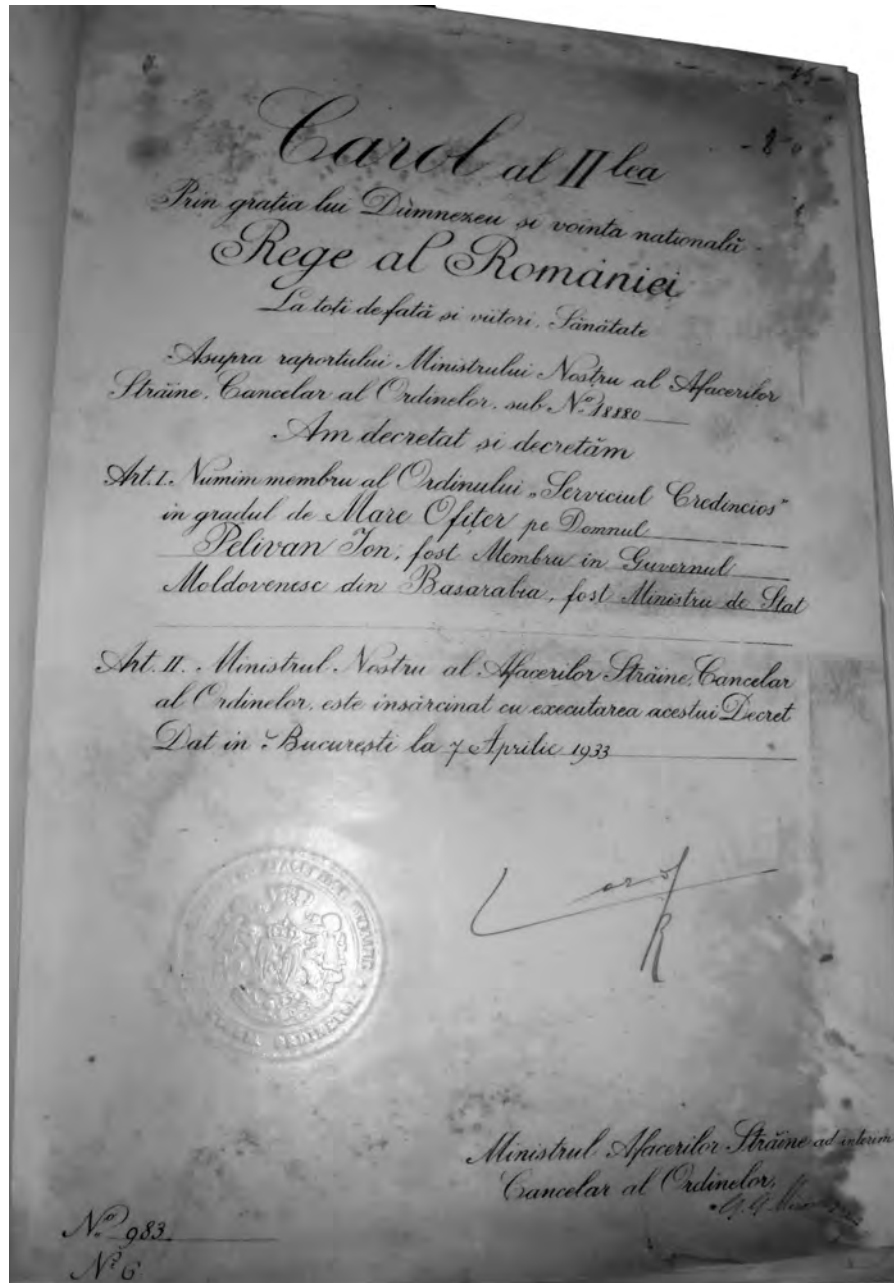 -15-
- 8
Carol al II lea
Prin grația lui Dumnezeu și voința națională -
Rege al României
La toți de față și viitori, Sănătate
Asupra raportului Ministrului Nostru al Afacerilor
Străine, Cancelar al Ordinelor, sub No. 18880
Am decretat și decretăm
Art. I. Numim membru al Ordinului „Serviciul Credincios"
in gradul de Mare Ofițer pe Domnul
Pelivan Ion, fost Membru in Guvernul
Moldovenesc din Basarabia, fost Ministru de Stat
Art. II. Ministrul Nostru al Afacerilor Străine, Cancelar
al Ordinelor, este insărcinat cu executarea acestui Decret
Dat in București la 7 Aprilie 1933
Carol R
Ministrul Afacerilor Străine ad interim
Cancelar al Ordinelor,
No. 983
No. 6